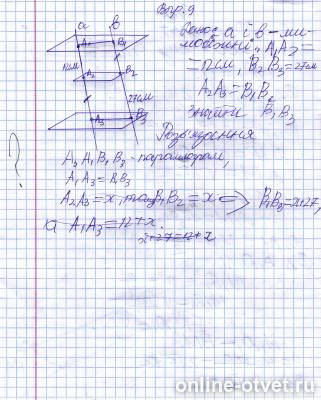 Впр. 9
a b
A₁ B₁
12см A₂ B₂
27см
A₃ B₃
a і b - ми-
мобіжні, A₁A₂ =
= 12см, B₂B₃ = 27см
A₂A₃ = B₁B₂
знайти B₁B₃
Розв'язання
A₃A₁B₁B₃ - паралелограм,
A₁A₃ = B₁B₃
A₂A₃ = x, то B₁B₂ = x ⇒ B₁B₃ = x+27,
а A₁A₃ = 12+x.
x+27 = 12+x
?
online-otvet.ru